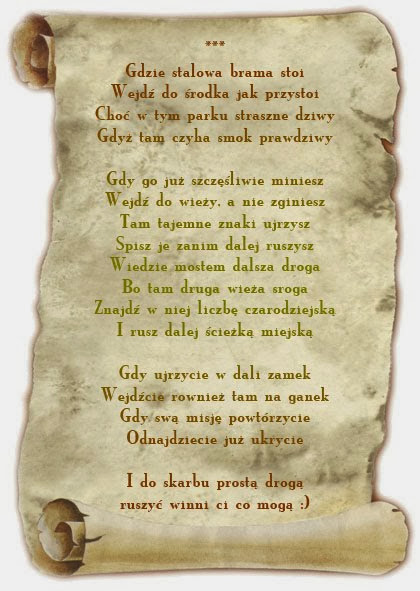 ***
Gdzie stalowa brama stoi
Wejdź do środka jak przystoi
Choć w tym parku straszne dziwy
Gdyż tam czyha smok prawdziwy
Gdy go już szczęśliwie miniesz
Wejdź do wieży, a nie zginiesz
Tam tajemne znaki ujrzysz
Spisz je zanim dalej ruszysz
Wiedzie mostem dalsza droga
Bo tam druga wieża sroga
Znajdź w niej liczbę czarodziejską
I rusz dalej ścieżką miejską
Gdy ujrzycie w dali zamek
Wejdźcie rownież tam na ganek
Gdy swą misję powtórzycie
Odnajdziecie już ukrycie
I do skarbu prostą drogą
ruszyć winni ci co mogą :)